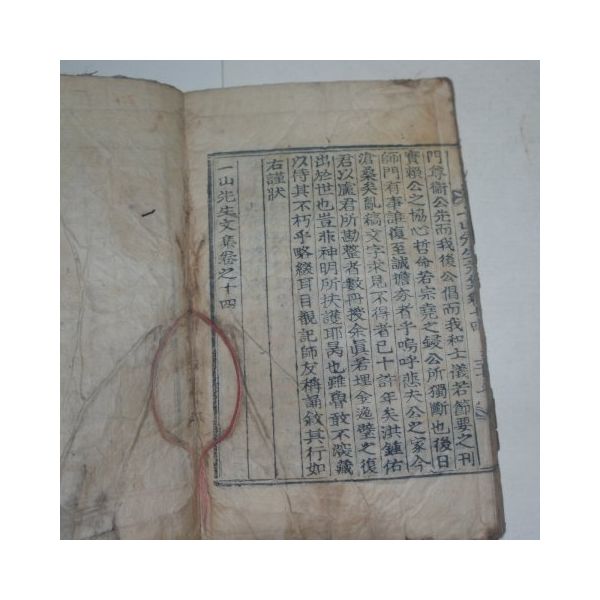 門尊衛公先而我後公倡而我和士儀若節要之刊
實賴公之協心哲命若宗堯之錽公所獨斷也後日
師門有事誰復至誠擔夯者乎嗚呼悲夫公之家今
滄桑矣亂稿文字求見不得者已十許年矣洪鍾佑
君以盧君所勘整者數冊授余眞若埋金逸璧之復
出於世也豈非神明所扶護耶曷也雖魯敢不深藏
以待其不朽乎略綴耳目覩記師友稱誦敘其行如
右謹狀
一山先生文集卷之十四